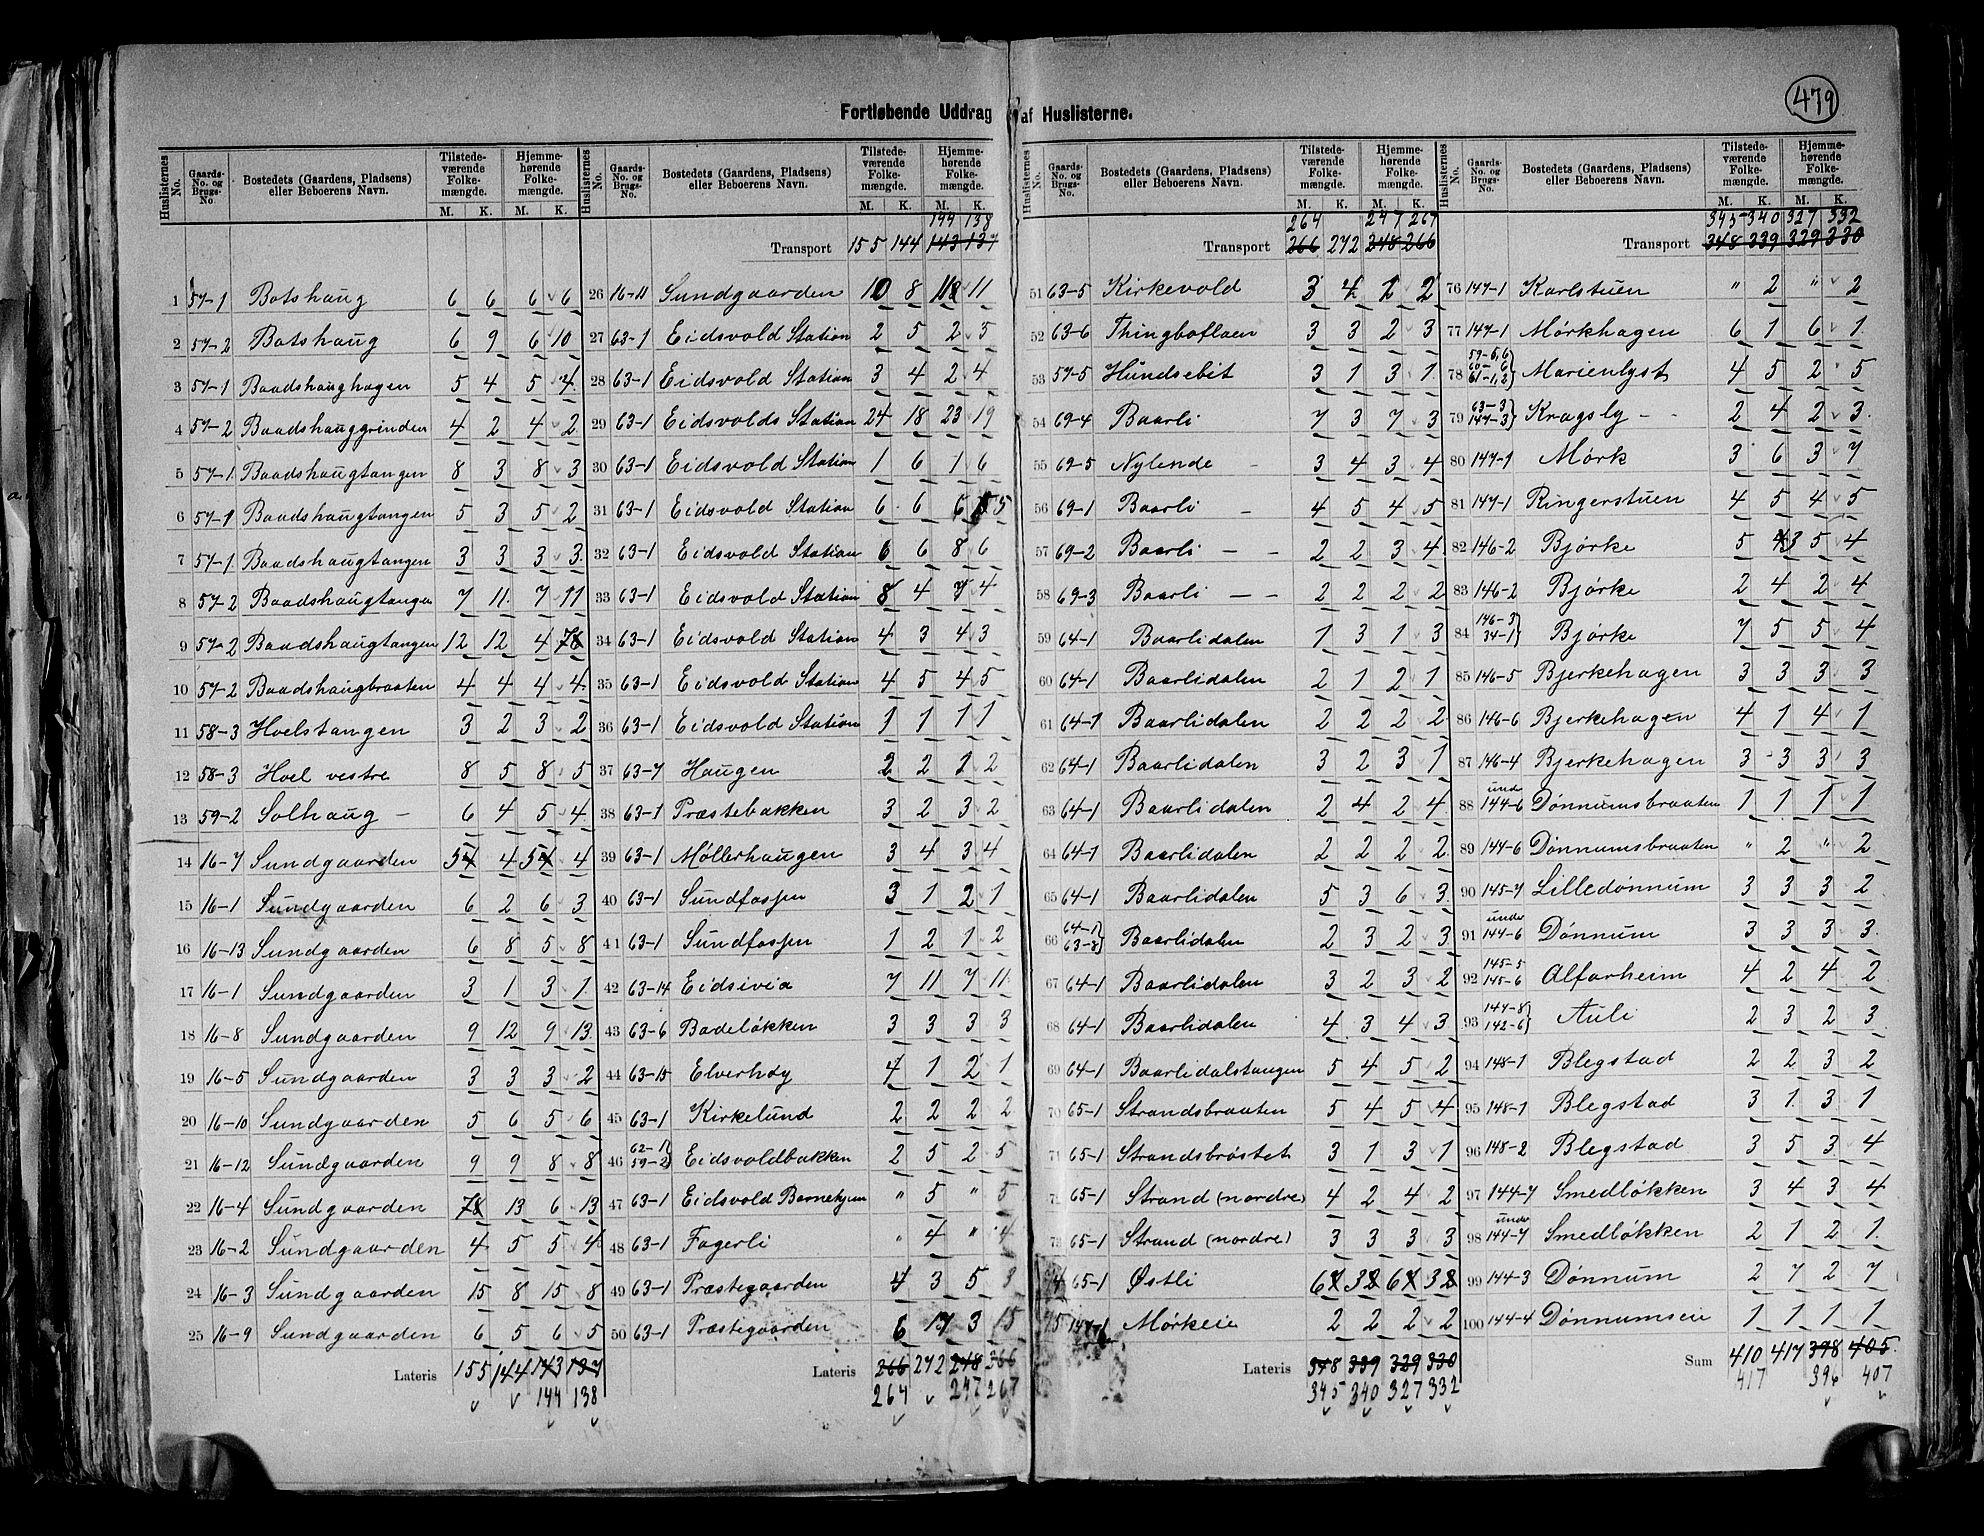 479
Fortløbende Uddrag af Huslisterne.
Huslisternes No. Gaards-No. og Brugs-No Bostedets (Gaardens, Pladsens) eller Beboerens Navn. Tilstedeværende Folkemængde. M. K. Hjemmehørende Folkemængde. M. K.
1 57-1 Botshaug 6 6 6 6
2 57-2 Botshaug 6 9 6 10
3 57-1 Baadshaughagen 5 4 5 4
4 57-2 Baadshauggrinden 4 2 4 2
5 57-1 Baadshaugtangen 8 3 8 3
6 57-1 Baadshaugtangen 5 3 5 2
7 57-1 Baadshaugtangen 3 3 3 3
8 57-2 Baadshaugtangen 7 11 7 11
9 57-2 Baadshaugtangen 12 12 4 7
10 57-2 Baadshaugbraaten 4 4 4 4
11 58-3 Hoelstangen 3 2 3 2
12 58-3 Hoel vestre 8 5 8 5
13 59-2 Solhaug 6 4 5 4
14 16-7 Sundgaarden 5 4 5 4
15 16-1 Sundgaarden 6 2 6 3
16 16-13 Sundgaarden 6 8 5 8
17 16-1 Sundgaarden 3 1 3 1
18 16-8 Sundgaarden 9 12 9 13
19 16-5 Sundgaarden 3 3 3 2
20 16-10 Sundgaarden 5 6 5 6
21 16-12 Sundgaarden 9 9 8 8
22 16-4 Sundgaarden 7 13 6 13
23 16-2 Sundgaarden 4 5 5 4
24 16-3 Sundgaarden 15 8 15 8
25 16-9 Sundgaarden 6 5 6 5
Lateris 155 144 143 137
144 138
Huslisternes No. Gaards-No. og Brugs-No. Bostedets (Gaardens, Pladsens) eller Beboerens Navn. Tilstedeværende Folkemængde. M. K. Hjemmehørende Folkemængde. M. K.
144 138
Transport 155 144 143 137
26 16-11 Sundgaarden 10 8 11 11
27 63-1 Eidsvold Station 2 5 2 5
28 63-1 Eidsvold Station 3 4 2 4
29 63-1 Eidsvolds Station 24 18 23 19
30 63-1 Eidsvold Station 1 6 1 6
31 63-1 Eidsvold Station 6 6 6 5
32 63-1 Eidsvold Station 6 6 8 6
33 63-1 Eidsvold Station 8 4 7 4
34 63-1 Eidsvold Station 4 3 4 3
35 63-1 Eidsvold Station 4 5 4 5
36 63-1 Eidsvold Station 1 1 1 1
37 63-7 Haugen 2 2 2 2
38 63-1 Præstebakken 3 2 3 2
39 63-1 Møllerhaugen 3 4 3 4
40 63-1 Sundfossen 3 1 2 1
41 63-1 Sundfossen 1 2 1 2
42 63-14 Eidsivia 7 11 7 11
43 63-6 Badeløkken 3 3 3 3
44 63-15 Elverhøy 4 1 2 1
45 63-1 Kirkelund 2 2 2 2
46 62-1 59-2 Eidsvoldbakken 2 5 2 5
47 63-1 Eidsvold Barnehjem " 5 " 5
48 63-1 Fagerli " 4 " 4
49 63-1 Præstegaarden 4 3 5 3
50 63-1 Præstegaarden 6 17 3 15
Lateris 266 272 248 266
264 247 267
Huslisternes No. Gaards-No. og Brugs-No. Bostedets (Gaardens, Pladsens) eller Beboerens Navn. Tilstedeværende Folkemængde. M. K. Hjemmehørende Folkemængde. M. K.
264 247 267
Transport 266 272 248 266
51 63-5 Kirkevold 3 4 2 2
52 63-6 Thingboflaen 3 3 2 3
53 57-5 Hundsebit 3 1 3 1
54 69-4 Baarli 7 3 7 3
55 69-5 Nylende 3 4 3 4
56 69-1 Baarli 4 5 4 5
57 69-2 Baarli 2 2 3 4
58 69-3 Baarli 2 2 2 2
59 64-1 Baarlidalen 1 3 1 3
60 64-1 Baarlidalen 2 1 2 1
61 64-1 Baarlidalen 2 2 2 2
62 64-1 Baarlidalen 3 2 3 1
63 64-1 Baarlidalen 2 4 2 4
64 64-1 Baarlidalen 2 2 2 2
65 64-1 Baarlidalen 5 3 6 3
66 64-1 63-8 Baarlidalen 2 3 2 3
67 64-1 Baarlidalen 3 2 3 2
68 64-1 Baarlidalen 4 3 4 3
69 64-1 Baarlidalstangen 5 4 5 2
70 65-1 Strandsbraaten 5 4 5 4
71 65-1 Strandsbrøstet 3 1 3 1
72 65-1 Strand (nordre) 4 2 4 2
73 65-1 Strand (nordre) 3 3 3 3
74 65-1 Østli 6 3 6 3
75 147-1 Mørkeie 2 2 2 2
Lateris 348 339 329 330
345 340 327 332
Huslisternes No. Gaards-No. og Brugs-No. Bostedets (Gaardens, Pladsens) eller Beboerens Navn. Tilstedeværende Folkemængde. M. K. Hjemmehørende Folkemængde. M. K.
345 340 327 332
Transport 348 339 329 330
76 147-1 Karlstuen " 2 " 2
77 147-1 Mørkhagen 6 1 6 1
78 59-5,6 60-6 61-1,2 Marienlyst 4 5 2 5
79 63-3 147-3 Kragsly 2 4 2 3
80 147-1 Mørk 3 6 3 7
81 147-1 Ringerstuen 4 5 4 5
82 146-2 Bjørke 5 3 5 4
83 146-2 Bjørke 2 4 2 4
84 146-3 34-1 Bjørke 7 5 5 4
85 146-5 Bjerkehagen 3 3 3 3
86 146-6 Bjerkehagen 4 1 4 1
87 146-4 Bjerkehagen 3 3 3 3
88 und 144-6 Dønnumsbraaten 1 1 1 1
89 144-6 Dønnumsbraaten " 2 " 2
90 145-7 Lilledønnum 3 3 3 2
91 under 144-6 Dønnum 3 3 3 3
92 145-5 145-6 Alfarheim 4 2 4 2
93 144-8 142-6 Auli 2 3 2 3
94 148-1 Blegstad 2 2 3 2
95 148-1 Blegstad 3 1 3 1
96 148-2 Blegstad 3 5 3 4
97 144-7 Smedløkken 3 4 3 4
98 under 144-7 Smedløkken 2 1 2 1
99 144-3 Dønnum 2 7 2 7
100 144-4 Dønnumseie 1 1 1 1
Sum 410 417 398 405
417 396 407